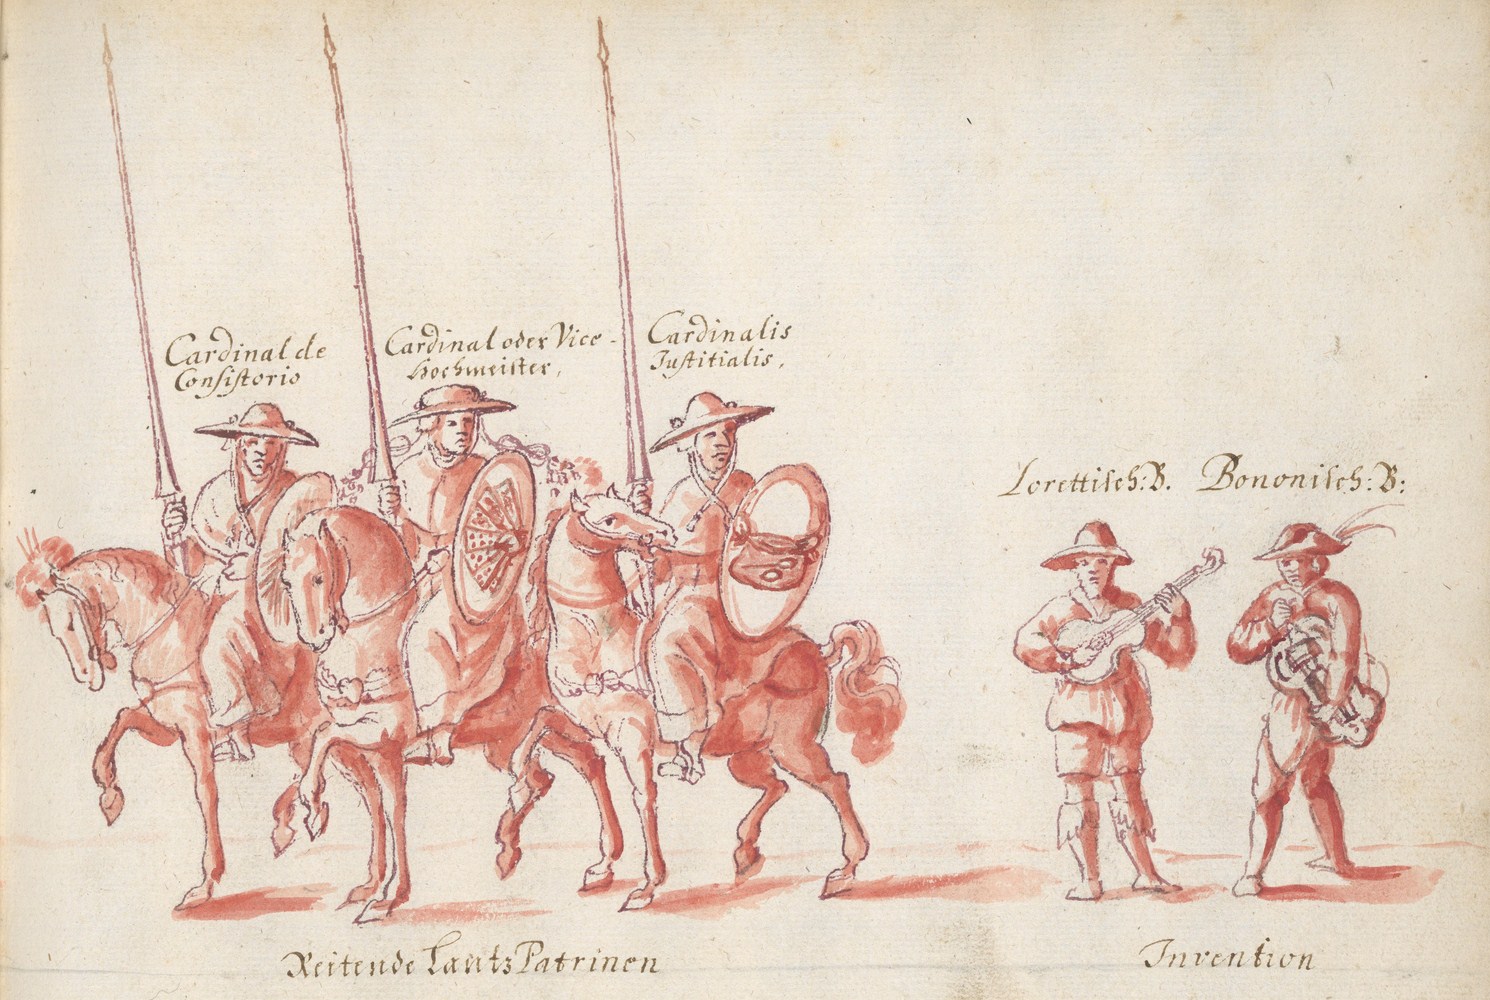 Cardinal de
Consistorio
Cardinal oder Vice-
Hochmeister,
Cardinalis
Justitialis,
Lorettisch: B.
Bononisch: B:
Reitende Lantz Patrinen
Invention